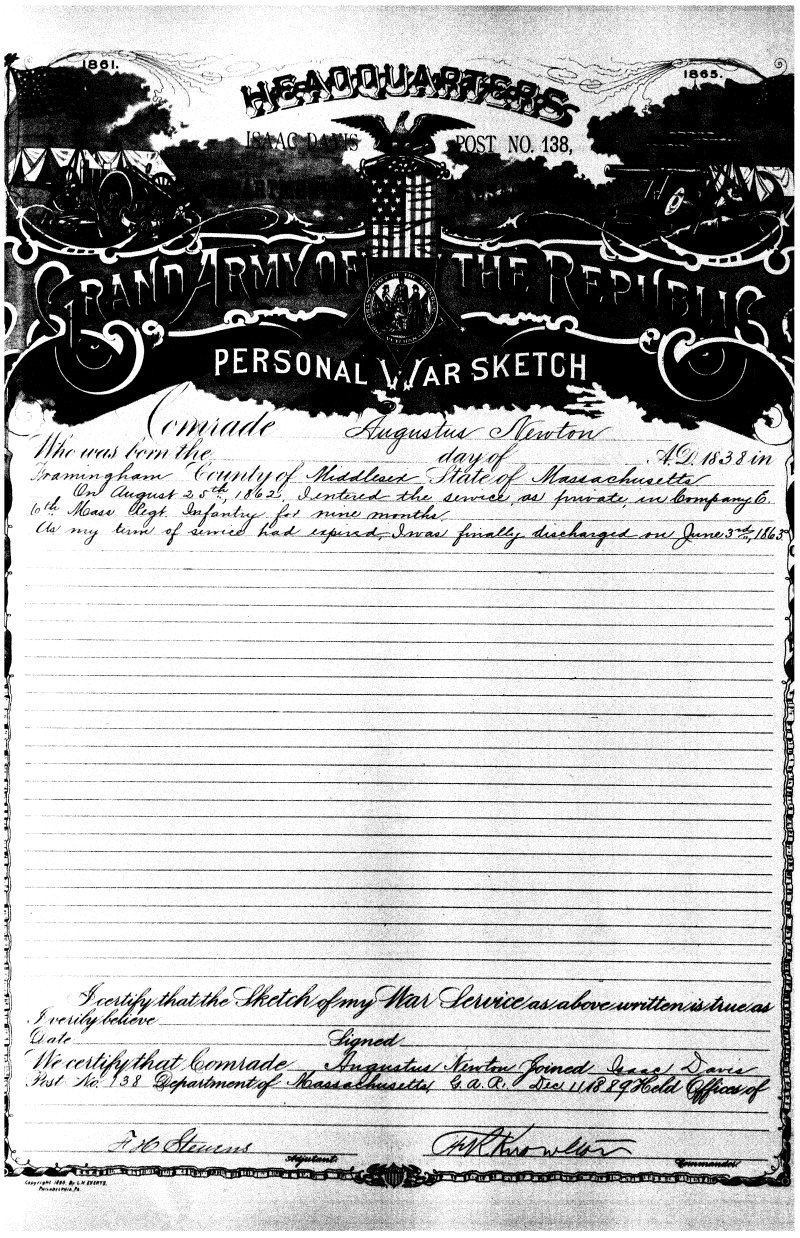 1861.
1865.
HEADQUARTERS
ISAAC DAVIS POST NO. 138,
GRAND ARMY OF THE REPUBLIC
PERSONAL WAR SKETCH
Comrade Augustus Newton
Who was born the day of A.D. 1838 in
Framingham County of Middlesex State of Massachusetts
On August 25th, 1862, I entered the service, as private, in Company E.
6th Mass Regt. Infantry for nine months.
As my term of service had expired, I was finally discharged on June 3rd, 1863
I certify that the Sketch of my War Service as above written is true as
I verily believe
Date Signed
We certify that Comrade Augustus Newton Joined Isaac Davis
Post No. 138 Department of Massachusetts, G.A.R. Dec 11 1889 Held Offices of
F H Stevens Knowlton
Adjutant. Commander.
Copyright 1889, By L.H. EVERTS,
Philadelphia, Pa.